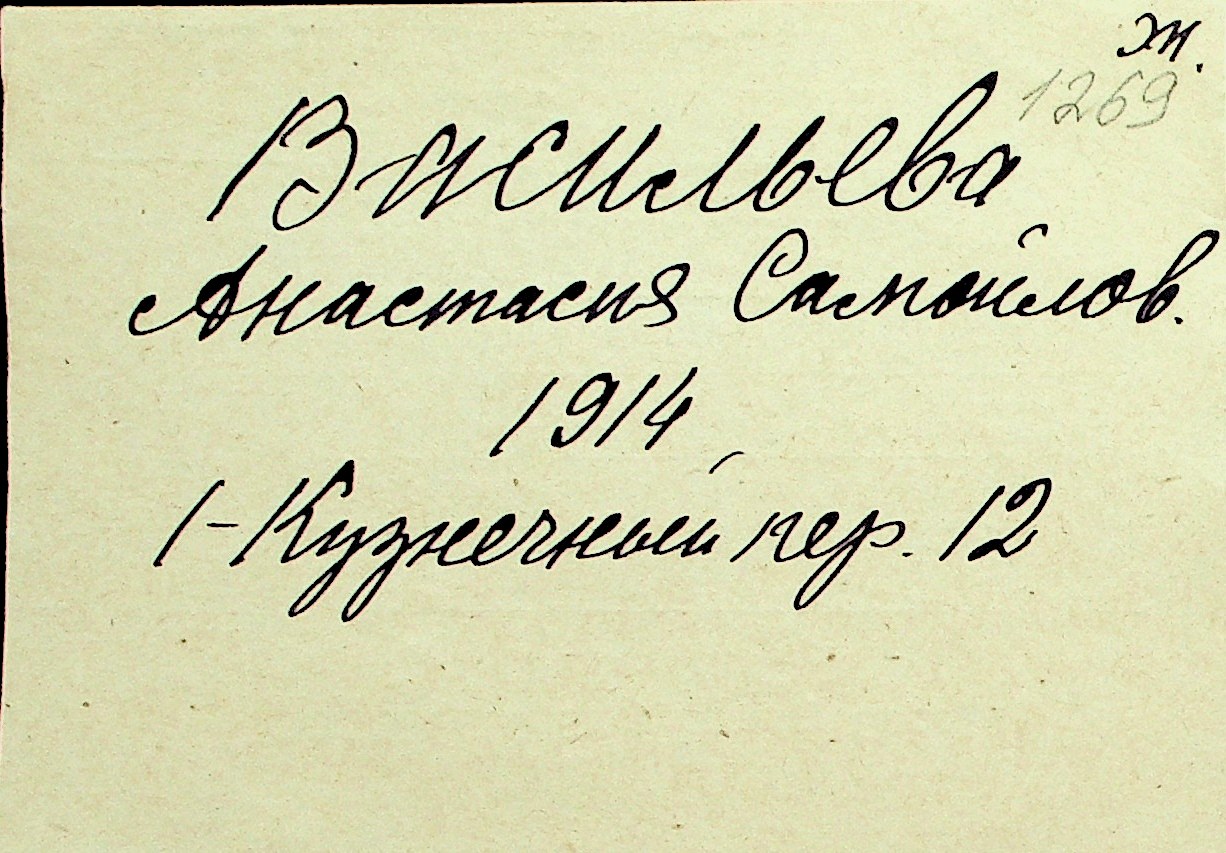 ж.
1269
Васильева
Анастасия Самойлов.
1914
1-Кузнечный пер. 12